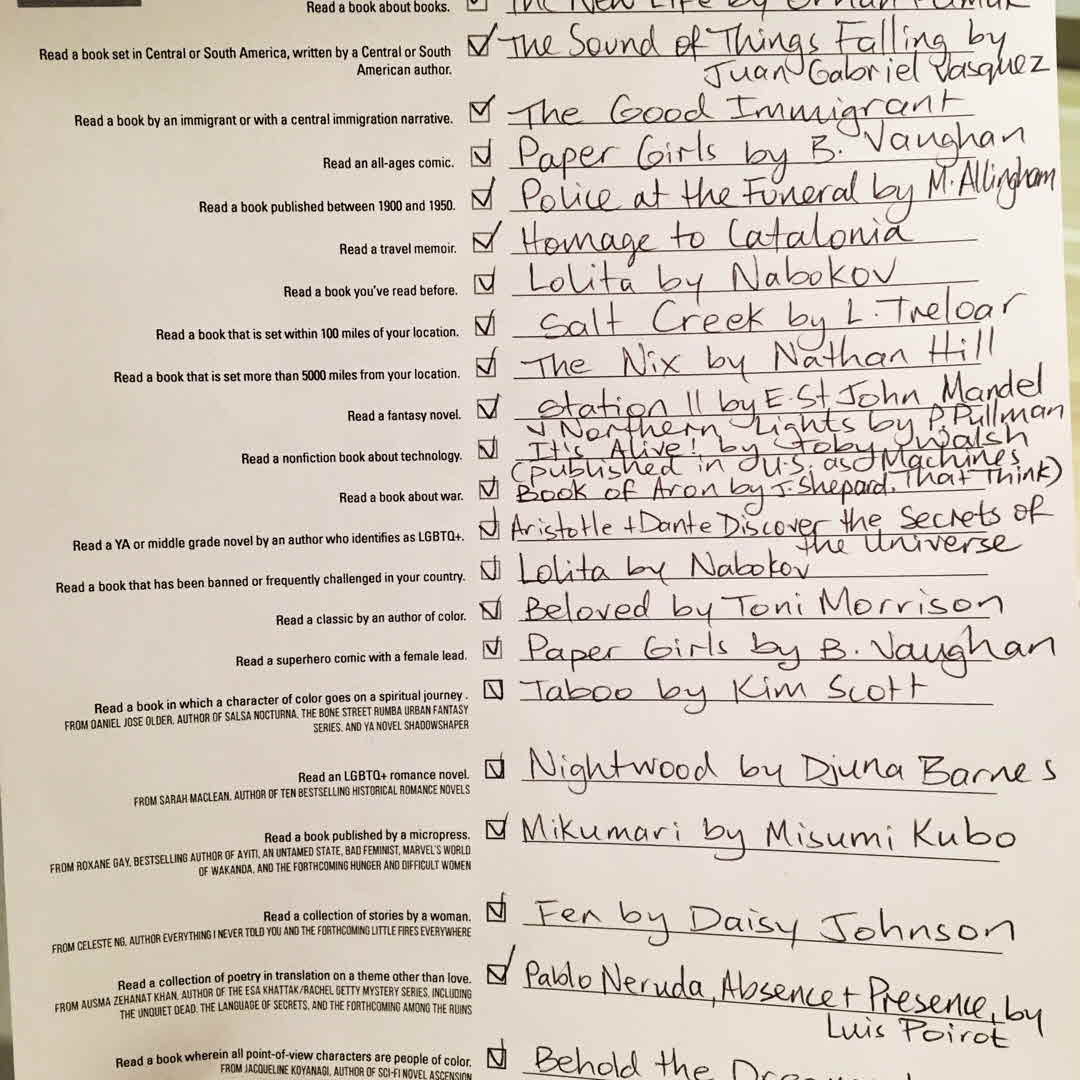 Read a book about books. The New Life by Orhan Pamuk
Read a book set in Central or South America, written by a Central or South The Sound of Things Falling by
American author. Juan Gabriel Vasquez
Read a book by an immigrant or with a central immigration narrative. The Good Immigrant
Read an all-ages comic. Paper Girls by B. Vaughan
Read a book published between 1900 and 1950. Police at the Funeral by M. Allingham
Read a travel memoir. Homage to Catalonia
Read a book you've read before. Lolita by Nabokov
Read a book that is set within 100 miles of your location. Salt Creek by L. Treloar
Read a book that is set more than 5000 miles from your location. The Nix by Nathan Hill
Read a fantasy novel. Station 11 by E. St John Mandel
Northern Lights by P. Pullman
Read a nonfiction book about technology. It's Alive! by Toby Walsh
(published in U.S. as Machines
Read a book about war. Book of Aron by J. Shepard. That Think)
Read a YA or middle grade novel by an author who identifies as LGBTQ+. Aristotle + Dante Discover the Secrets of
the Universe
Read a book that has been banned or frequently challenged in your country. Lolita by Nabokov
Read a classic by an author of color. Beloved by Toni Morrison
Read a superhero comic with a female lead. Paper Girls by B. Vaughan
Read a book in which a character of color goes on a spiritual journey. Taboo by Kim Scott
FROM DANIEL JOSE OLDER, AUTHOR OF SALSA NOCTURNA, THE BONE STREET RUMBA URBAN FANTASY
SERIES, AND YA NOVEL SHADOWSHAPER
Read an LGBTQ+ romance novel. Nightwood by Djuna Barnes
FROM SARAH MACLEAN, AUTHOR OF TEN BESTSELLING HISTORICAL ROMANCE NOVELS
Read a book published by a micropress. Mikumari by Misumi Kubo
FROM ROXANE GAY, BESTSELLING AUTHOR OF AYITI, AN UNTAMED STATE, BAD FEMINIST, MARVEL'S WORLD
OF WAKANDA, AND THE FORTHCOMING HUNGER AND DIFFICULT WOMEN
Read a collection of stories by a woman. Fen by Daisy Johnson
FROM CELESTE NG, AUTHOR EVERYTHING I NEVER TOLD YOU AND THE FORTHCOMING LITTLE FIRES EVERYWHERE
Read a collection of poetry in translation on a theme other than love. Pablo Neruda, Absence + Presence, by
FROM AUSMA ZEHANAT KHAN, AUTHOR OF THE ESA KHATTAK/RACHEL GETTY MYSTERY SERIES, INCLUDING Luis Poirot
THE UNQUIET DEAD, THE LANGUAGE OF SECRETS, AND THE FORTHCOMING AMONG THE RUINS
Read a book wherein all point-of-view characters are people of color. Behold the
FROM JACQUELINE KOYANAGI, AUTHOR OF SCI-FI NOVEL ASCENSION